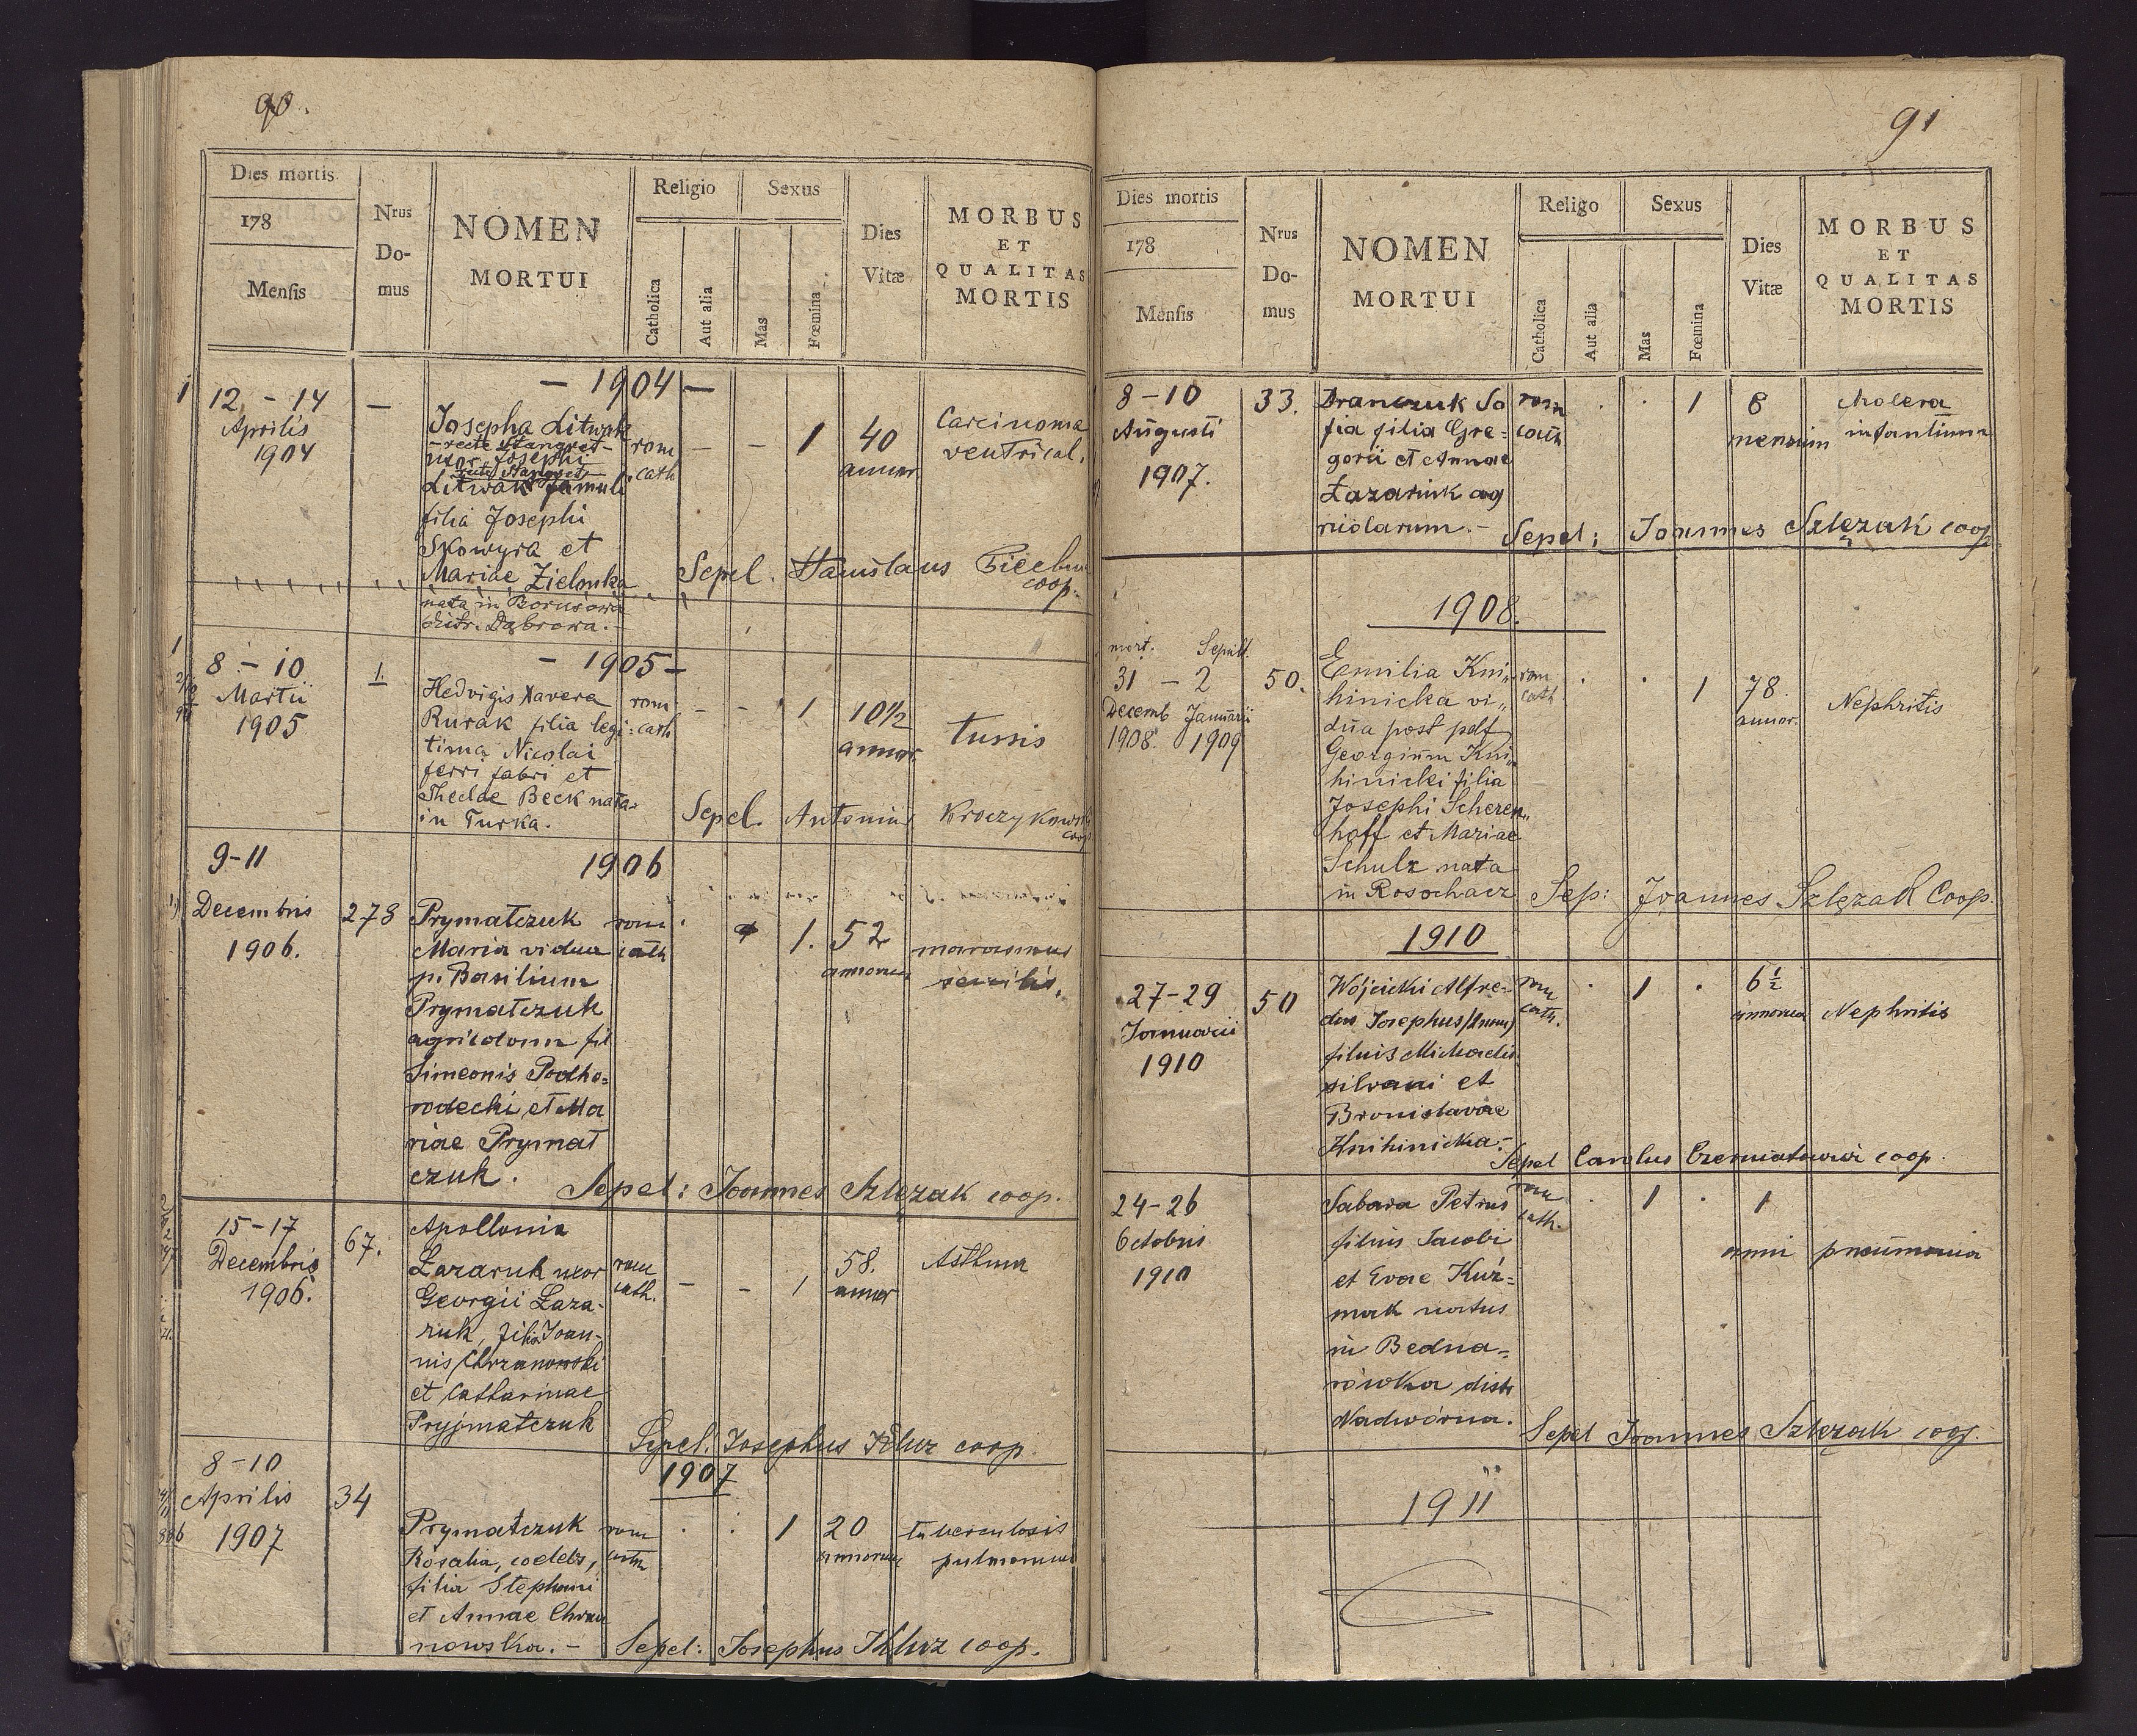 90.
Dies mortis
178
Mensis
Nrus
Do-
mus
NOMEN
MORTUI
Religio
Catholica
Aut alia
Sexus
Mas
Fœmina
Dies
Vitæ
MORBUS
ET
QUALITAS
MORTIS
- 1904 -
1
12 - 14
Aprilis
1904
-
Josepha Litwak
- recte Stangret -
uxor Josephi
recte Stangret
Litwak famuli
filia Josephi
Skowyra et
Mariae Zielinska
nata in Borusowa
distr. Dąbrowa. -
rom
cath
-
-
1
40
annor.
Carcinoma
ventricul.
Sepel. Stanislaus
coop.
- 1905 -
1
8 - 10
Martii
1905
1.
Hedvigis Xavera
Rurak filia legi:
tima Nicolai
ferri fabri et
Theclae Beck nata
in Turka.
rom
cath
-
-
1
10 1/2
annor.
tussis
Sepel. Antonius Kroczykowski
coop.
1906
9-11
Decembris
1906.
278
Prymatczuk
Maria vidua
p. Basilium
Prymatczuk
agricolam fil
Simeonis Podho-
rodecki et Ma
riae Prymat
czuk.
rom
cath
1.
52
annorum
marasmus
senilis.
Sepel: Joannes Szlęzak coop.
15-17
Decembris
1906.
67.
Apollonia
Łazaruk uxor
Georgii Łaza-
ruk, filia Joan-
nis Chrzanowski
et Catharinae
Pryjmatczuk
rom
cath.
-
-
1
58.
annor
Asthma
Sepel. Josephus Kluz coop.
1907
8-10
Aprilis
1907
34
Prymatczuk
Rosalia, coelebs,
filia Stephani
et Annae Chrza
nowska. -
rom
cath
1
20
annorum
tuberculosis
pulmonum
Sepel: Josephus Kluz coop.
91
Dies mortis
178
Mensis
Nrus
Do-
mus
NOMEN
MORTUI
Religo
Catholica
Aut alia
Sexus
Mas
Fœmina
Dies
Vitæ
MORBUS
ET
QUALITAS
MORTIS
8-10
Augusti
1907.
33.
Dranczuk So
fia filia Gre-
gorii et Annae
Łazaruk ag
ricolarum. -
rom
cath
1
8
mensium
cholera
infantium
Sepel: Joannes Szlęzak coop.
1908.
mort. Sepult.
31 - 2
Decemb Januarii
1908. 1909
50.
Eamilia Kni„
hinicka vi„
dua post pdf
Georgium Kni„
hinicki filia
Josephi Scheren„
hoff et Mariae
Schulz nata
in Rosochacz
rom
cath
1
78.
annor.
Nephritis
Sep: Joannes Szlęzak Coop.
1910
27-29
Januarii
1910
50
Wójcicki Alfre-
dus Josephus
filius Michaelis
silvani et
Bronislavae
Knihinicka. -
rom
cath.
1
6 1/2
annorum
Nephritis
Sepel Carolus coop.
24-26
Octobris
1910
Sabara Petrus
filius Jacobi
et Evae Kuź-
mak natus
in Bedna-
rówka distr
Nadwórna.
rom
cath.
1
1
anni
pneumonia
Sepel Joannes Szlęzak coop.
1911